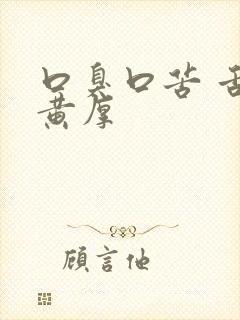 口臭口苦 舌
黄厚
顾言他